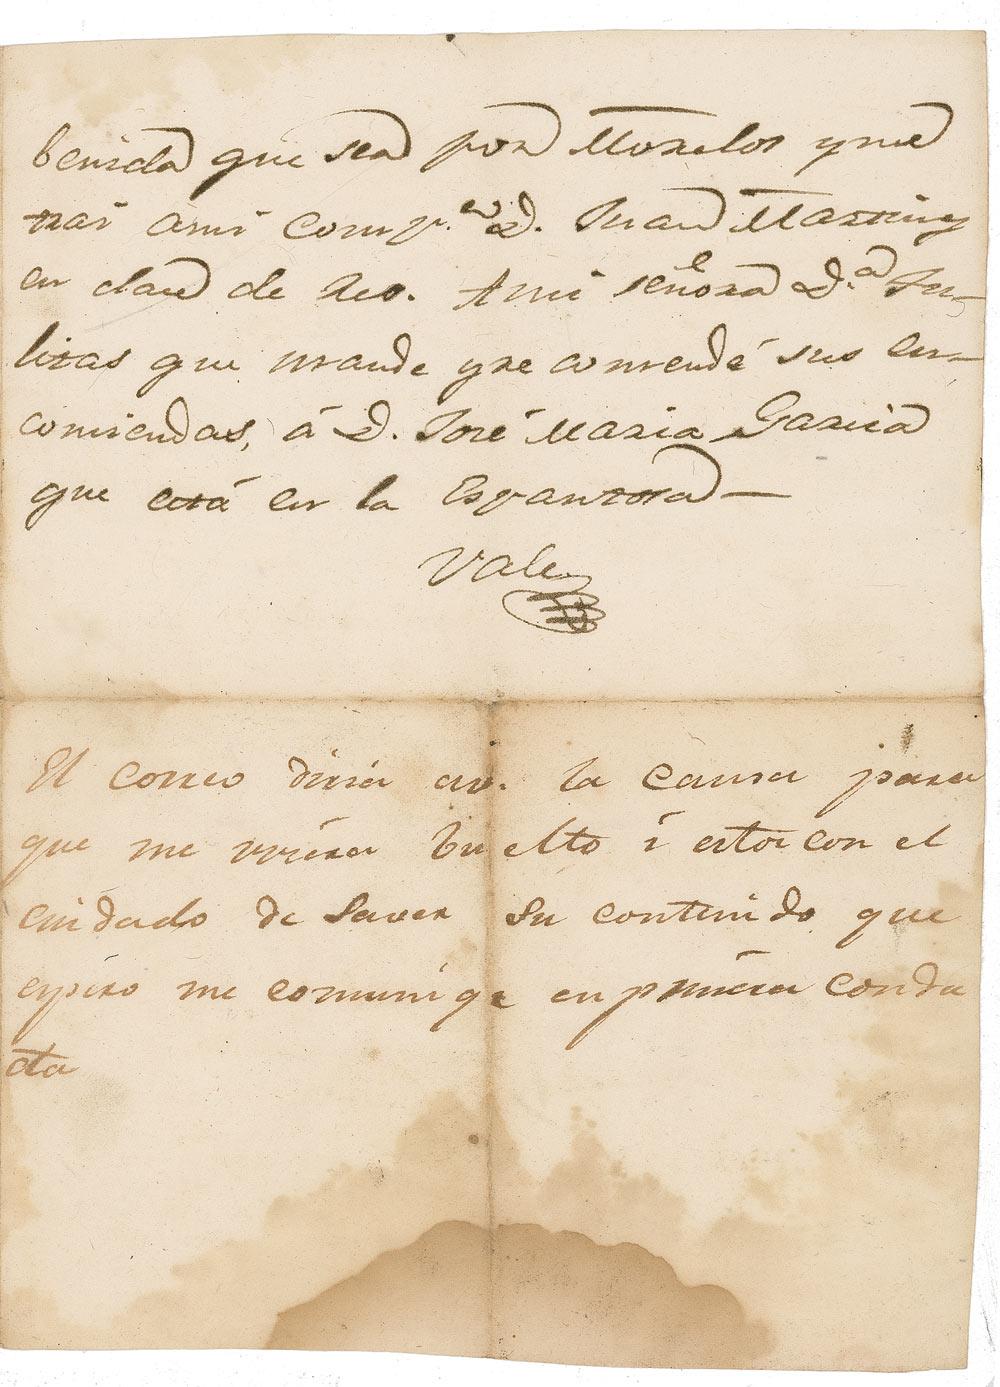 benida que sea por Morelos y me
trai ami comp.e D. Juan Martiny
en clase de Reo. Ami señora D.a Ju-
litas que mande y re comende sus en-
comiendas, á D. José Maria Garcia
que está en la Espantosa —
Vale
El correo diria av. la causa para
que me viera buelto i estoi con el
cuidado de Saver su contenido que
espero me comuniqe en primera condu
cta